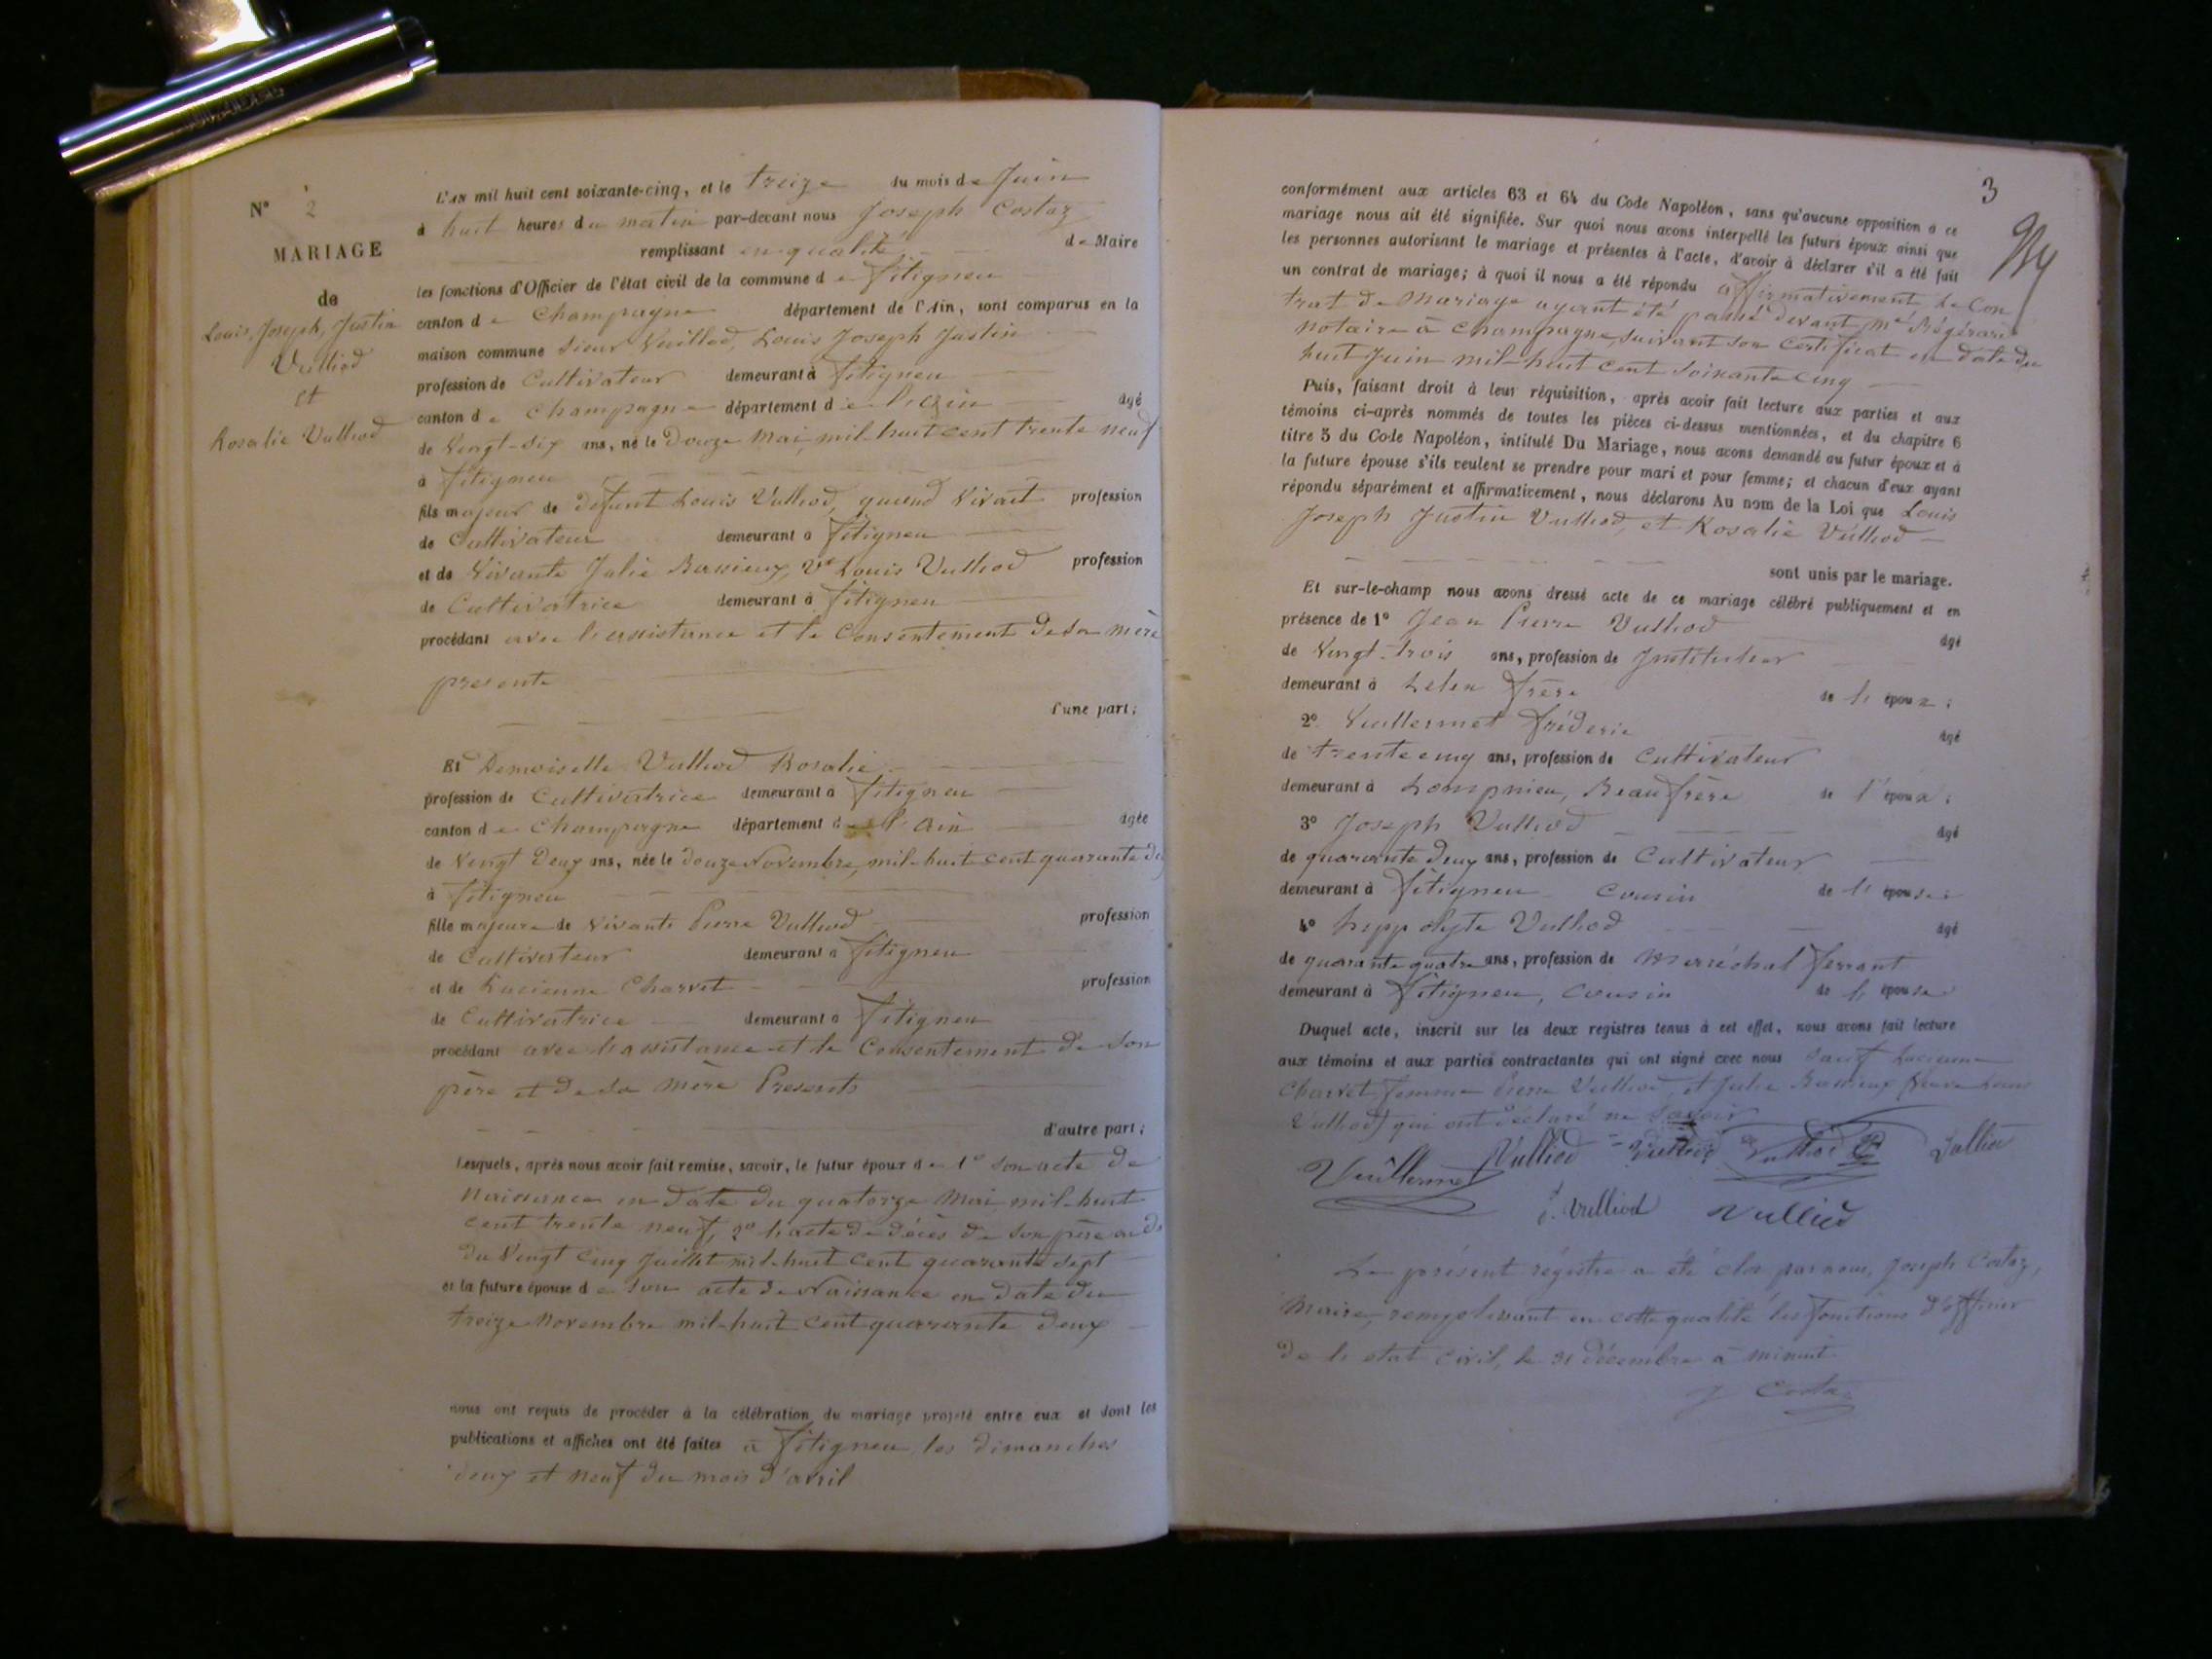 N° 2
MARIAGE
de
Louis, Joseph, Justin
Vulliod
et
Rosalie Vulliod
L'AN mil huit cent soixante-cinq, et le treize du mois de Juin
à huit heures du matin par-devant nous Joseph Costaz
remplissant en qualité de Maire
les fonctions d'Officier de l'état civil de la commune de fitigneu
canton de Champagne département de l'Ain, sont comparus en la
maison commune Sieur Vuillod, Louis Joseph Justin
profession de Cultivateur demeurant à fitigneu
canton de Champagne département de l'Ain âgé
de Vingt-six ans, né le Douze Mai, mil-huit cent trente neuf
à fitigneu
fils majeur de défunt Louis Vulliod, quand vivait profession
de Cultivateur demeurant à fitigneu
et de Vivante Julie Bassieux, Ve Louis Vulliod profession
de Cultivatrice demeurant à fitigneu
procédant avec l'assistance et le Consentement de sa mère
présente
d'une part;
Et Demoiselle Vulliod Rosalie
profession de Cultivatrice demeurant à fitigneu
canton de Champagne département de l'Ain âgée
de Vingt Deux ans, née le Douze Novembre, mil-huit cent quarante de
à fitigneu
fille majeure de Vivants Pierre Vulliod profession
de Cultivateur demeurant à fitigneu
et de Lucienne Charvet profession
de Cultivatrice demeurant à fitigneu
procédant avec l'assistance et le Consentement de son
père et de sa mère Présents
d'autre part;
Lesquels, après nous avoir fait remise, savoir, le futur époux de 1° son acte de
Naissance en date du quatorze Mai mil-huit
cent trente neuf, 2° l'acte de décès de son père
du Vingt Cinq Juillet mil-huit cent quarante sept
et la future épouse de son acte de Naissance en date du
treize Novembre mil-huit cent quarante deux
nous ont requis de procéder à la célébration du mariage projeté entre eux et dont les
publications et affiches ont été faites à fitigneu, les dimanches
deux et neuf du mois d'avril
3
conformément aux articles 63 et 64 du Code Napoléon, sans qu'aucune opposition à ce
mariage nous ait été signifiée. Sur quoi nous avons interpellé les futurs époux ainsi que
les personnes autorisant le mariage et présentes à l'acte, d'avoir à déclarer s'il a été fait
un contrat de mariage; à quoi il nous a été répondu affirmativement le Con
trat de Mariage ayant été passé devant Me
notaire à Champagne, suivant son certificat en date du
huit Juin mil-huit cent soixante cinq
Puis, faisant droit à leur réquisition, après avoir fait lecture aux parties et aux
témoins ci-après nommés de toutes les pièces ci-dessus mentionnées, et du chapitre 6
titre 5 du Code Napoléon, intitulé Du Mariage, nous avons demandé au futur époux et à
la future épouse s'ils veulent se prendre pour mari et pour femme; et chacun d'eux ayant
répondu séparément et affirmativement, nous déclarons Au nom de la Loi que Louis
Joseph Justin Vulliod, et Rosalie Vulliod
sont unis par le mariage.
Et sur-le-champ nous avons dressé acte de ce mariage célébré publiquement et en
présence de 1° Jean Pierre Vulliod âgé
de Vingt-trois ans, profession de Instituteur
demeurant à Lelex frère de l'époux;
2° Vuillermet fréderic âgé
de trente cinq ans, profession de Cultivateur
demeurant à Lompnieu, Beau frère de l'époux;
3° Joseph Vulliod âgé
de quarante deux ans, profession de Cultivateur
demeurant à fitigneu Cousin de l'épouse;
4° hyppolyte Vulliod âgé
de quarante quatre ans, profession de Marréchal ferrant
demeurant à fitigneu, Cousin de l'épouse
Duquel acte, inscrit sur les deux registres tenus à cet effet, nous avons fait lecture
aux témoins et aux parties contractantes qui ont signé avec nous sauf Lucienne
Charvet femme Pierre Vulliod, et Julie Bassieux veuve Louis
Vulliod, qui ont déclaré ne savoir
Vuillermet Vulliod Vulliod Vulliod Vulliod
J. Vulliod Vulliod
Le présent régistre a été clos par nous, Joseph Costaz,
Maire, remplissant en cette qualité les fonctions d'officier
de l'état civil, le 31 décembre à minuit
J Costaz